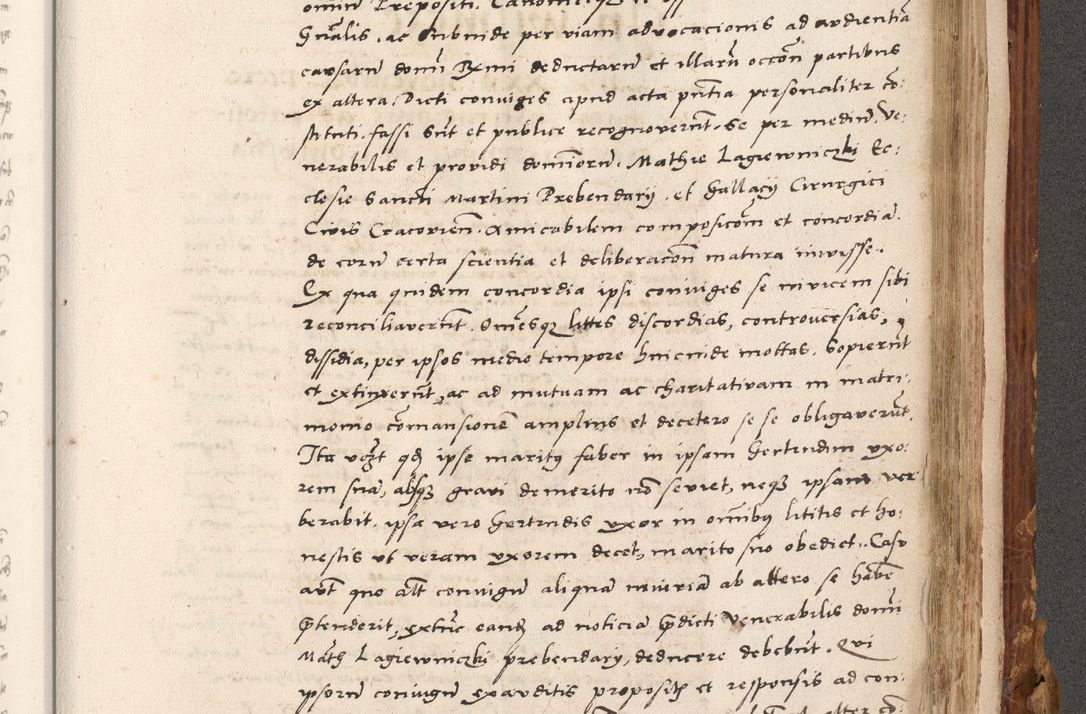 gnalis, ac subinde per viam advocacionis ad audientiā
causarū domi Rxmi deductarū et illarū occōn partibus
ex altera, Dicti coniuges apud acta pn̄tia personaliter cō-
stituti, fassi sūt et publice recognoverūt, se per mediū, Ve-
nerabilis et providi dominorū, Mathie Lagiewniczki Ec-
clesie Sancti Martini Prebendarij, et Gallaçij Cirurgici
Civis Cracovien̄, Amicabilem composicōm et concordiā,
de eorū certa scientia et deliberacōn matura inivisse.
Ex qua quidem concordia ipsi coniuges se invicem sibi
reconciliaverūt, Omēsqȝ littes discordias, controversias,
dissidia, per ipsos medio tempore hincinde mottas, Sopierūt
et extinxerūt, ac ad mutuam ac charitativam in matri-
monio cōmansionē amplius et decetero se se obligaverūt.
Ita vȝt qđ ipse maritȝ faber in ipsam Hertrudim uxo-
rem suā, absqȝ gravi demerito nō seviet, neqȝ ipsam ver-
berabit, ipsa vero Hertrudis uxor in omībȝ lititis et ho-
nestis ut veram uxorem decet, marito suo obediet. Casu
aūt quo alt̄ coniugū aliquā iniuriā ab altero se habē
p̄tenderit, extūc eandȝ ad noticiā p̄dicti Venerabilis domi
Māth Lagiewniczki prebendarij, deducere debebūt. Qui
ipsorū coniugū exauditis propositis et responsis ad con-